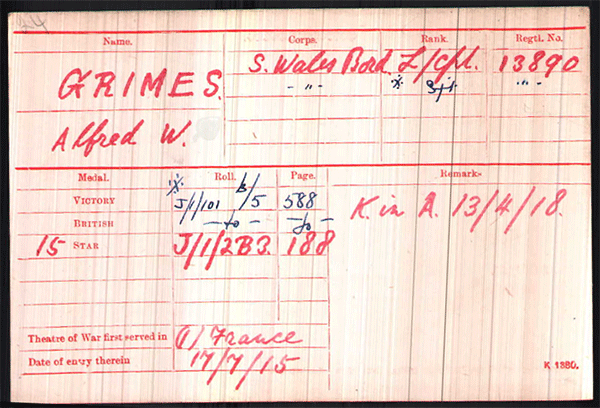 Name. Corps. Rank. Regtl. No.
GRIMES. S. Wales Bord. L/Cpl. 13890
- " - Sjt. - " -
Alfred W.
Medal. Roll. Page. Remarks
VICTORY J/1/101 B/5 588 K. in A. 13/4/18.
BRITISH - do - - do -
15 STAR J/1/2B3. 188
Theatre of War first served in (1) France
Date of entry therein 17/7/15
K 1380.